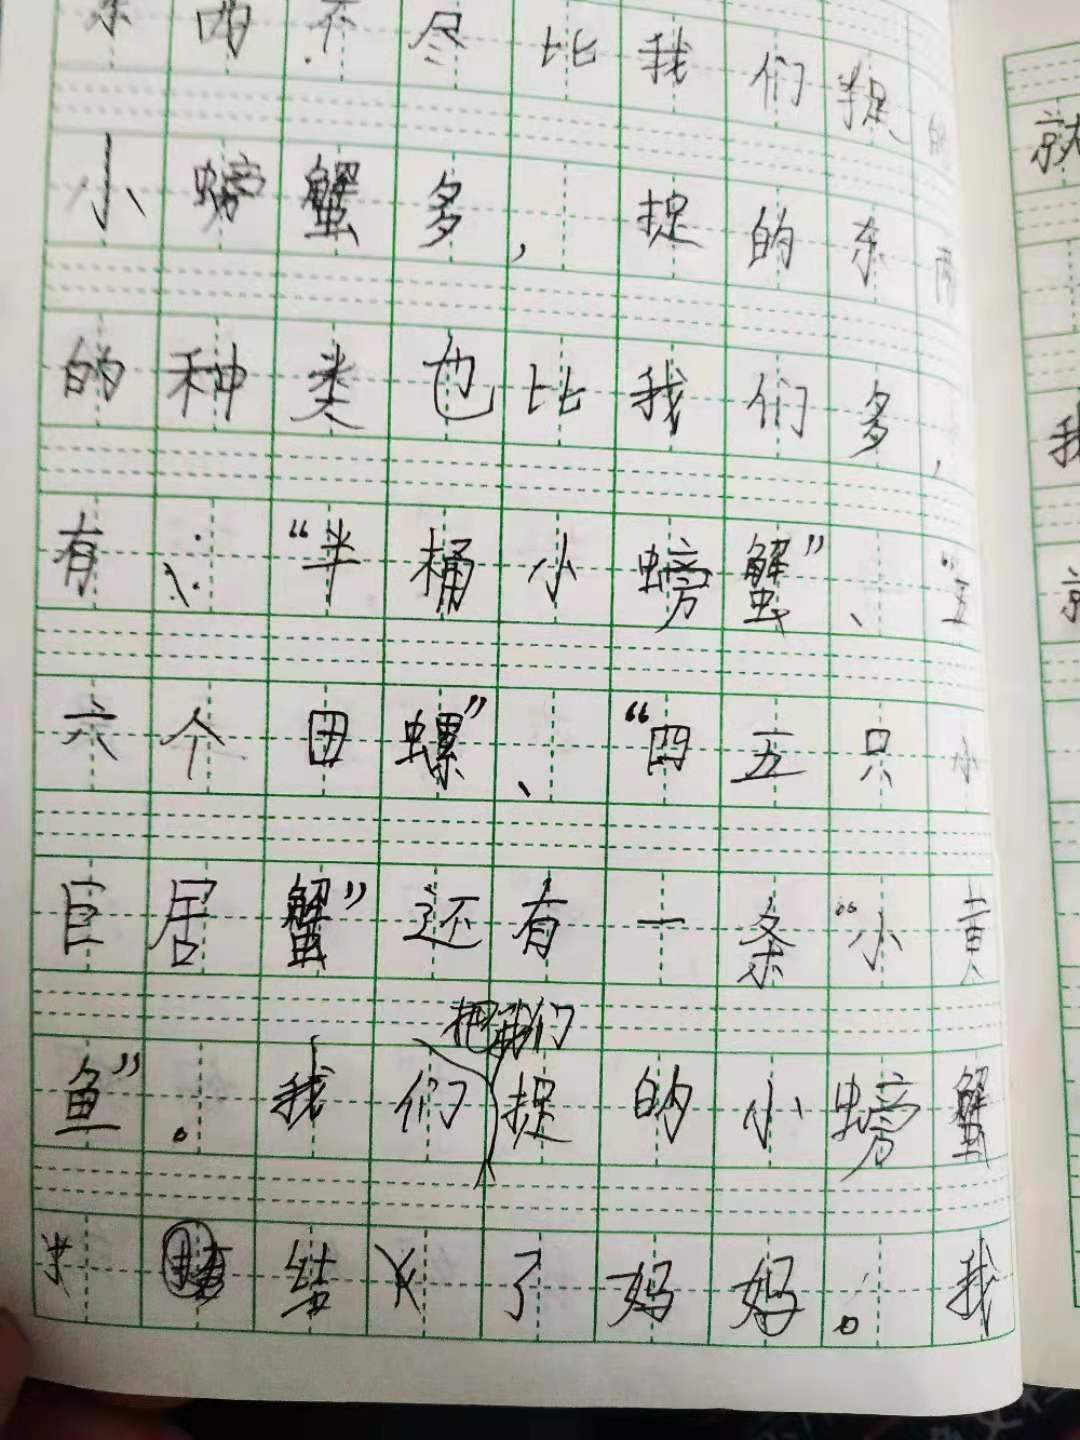 东西不尽比我们捉的
小螃蟹多，捉的东西
的种类也比我们多，
有：“半桶小螃蟹”、“五
六个田螺”、“四五只小
巨居蟹”还有一条“小黄
把我们
鱼”。我们捉的小螃蟹
结了妈妈。我
就
我